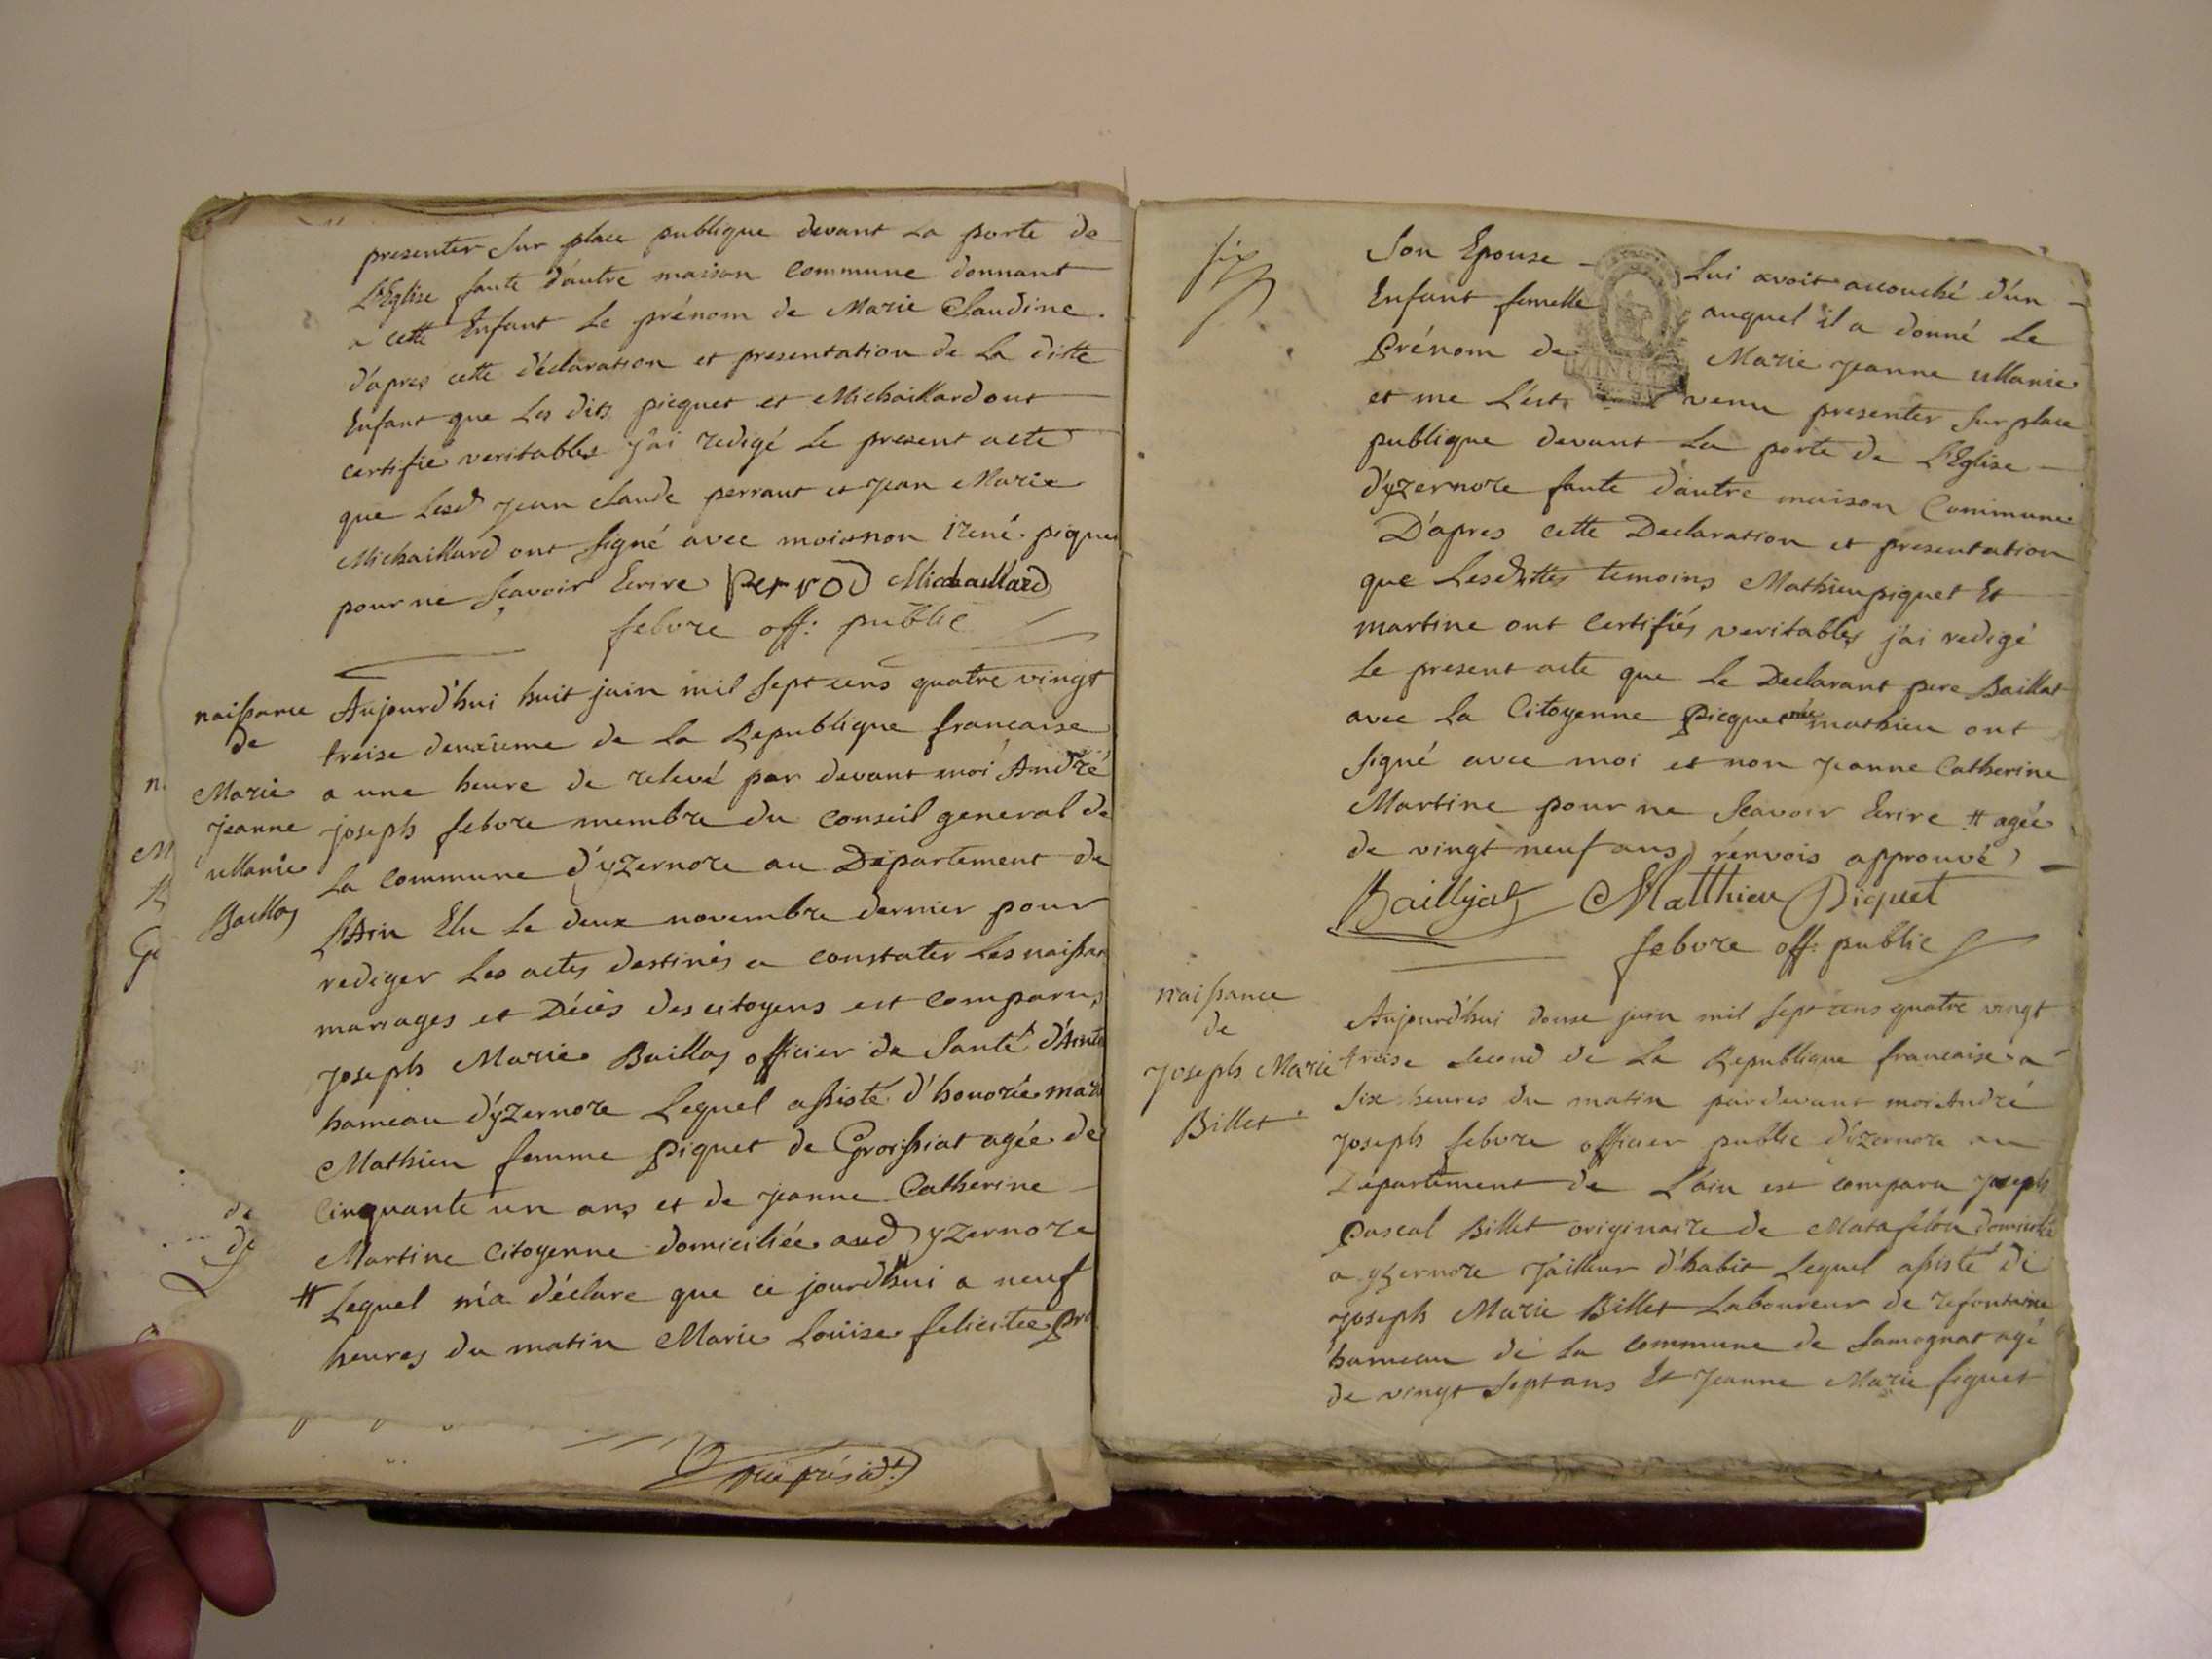 presenter sur place publique devant la porte de
L'Eglise faute d'autre maison commune donnant
a cette Enfant le prénom de Marie Claudine.
d'apres cette déclaration et presentation de la ditte
Enfant que les dits picquet et Michaillard ont
certifié veritables j'ai redigé le present acte
que lesd jean claude perraut et jean Marie
Michaillard ont signé avec moi et non irené. piquet
pour ne sçavoir Ecrire perrod Michaillard
febvre off: public
naissance
de
Marie
jeanne
Baillas
Aujourd'hui huit juin mil sept cens quatre vingt
treise deuxieme de la Republique francaise
a une heure de relevé par devant moi André
joseph febvre membre du conseil general de
la commune d'yzernore au Département de
L'Ain Elu le deux novembre dernier pour
rediger les actes destinés a constater les naissan
mariages et Décès des citoyens est comparu,
joseph Marie Baillas officier de santé
hameau d'yzernore lequel assisté d'honorée
Mathieu femme piquet de Groissiat agée de
Cinquante un ans et de jeanne Catherine
Martine Citoyenne domiciliée aud yzernore
# Lequel m'a déclare que ce jourd'hui a neuf
heures du matin Marie Louise felicitee
de
de
six
son Epouse lui avoit accouché d'un
Enfant femelle auquel il a donné le
Prénom de Marie jeanne
et me l'est venu presenter sur place
publique devant la porte de L'Eglise
d'yzernore faute d'autre maison Commune
D'apres cette Declaration et presentation
que lesdittes temoins Mathieu piquet Et
martine ont certifiés veritables j'ai redigé
le present acte que le Declarant pere Baillat
avec la Citoyenne Picquet née mathieu ont
signé avec moi et non jeanne Catherine
Martine pour ne sçavoir Ecrire # agée
de vingt neuf ans renvois approuvé
Baillyat Matthieu Piquet
febvre off: public
naissance
de
joseph Marie
Billet
Aujourd'hui douse juin mil sept cens quatre vingt
treise second de la Republique francaise a
six heures du matin pardevant moi André
joseph febvre officier public d'yzernore au
Département de L'ain est comparu joseph
Pascal Billet originaire de Matafelon domicilié
a yzernore tailleur d'habit lequel assisté de
joseph Marie Billet Laboureur de
hameau de la commune de Samognat agé
de vingt sept ans Et jeanne Marie